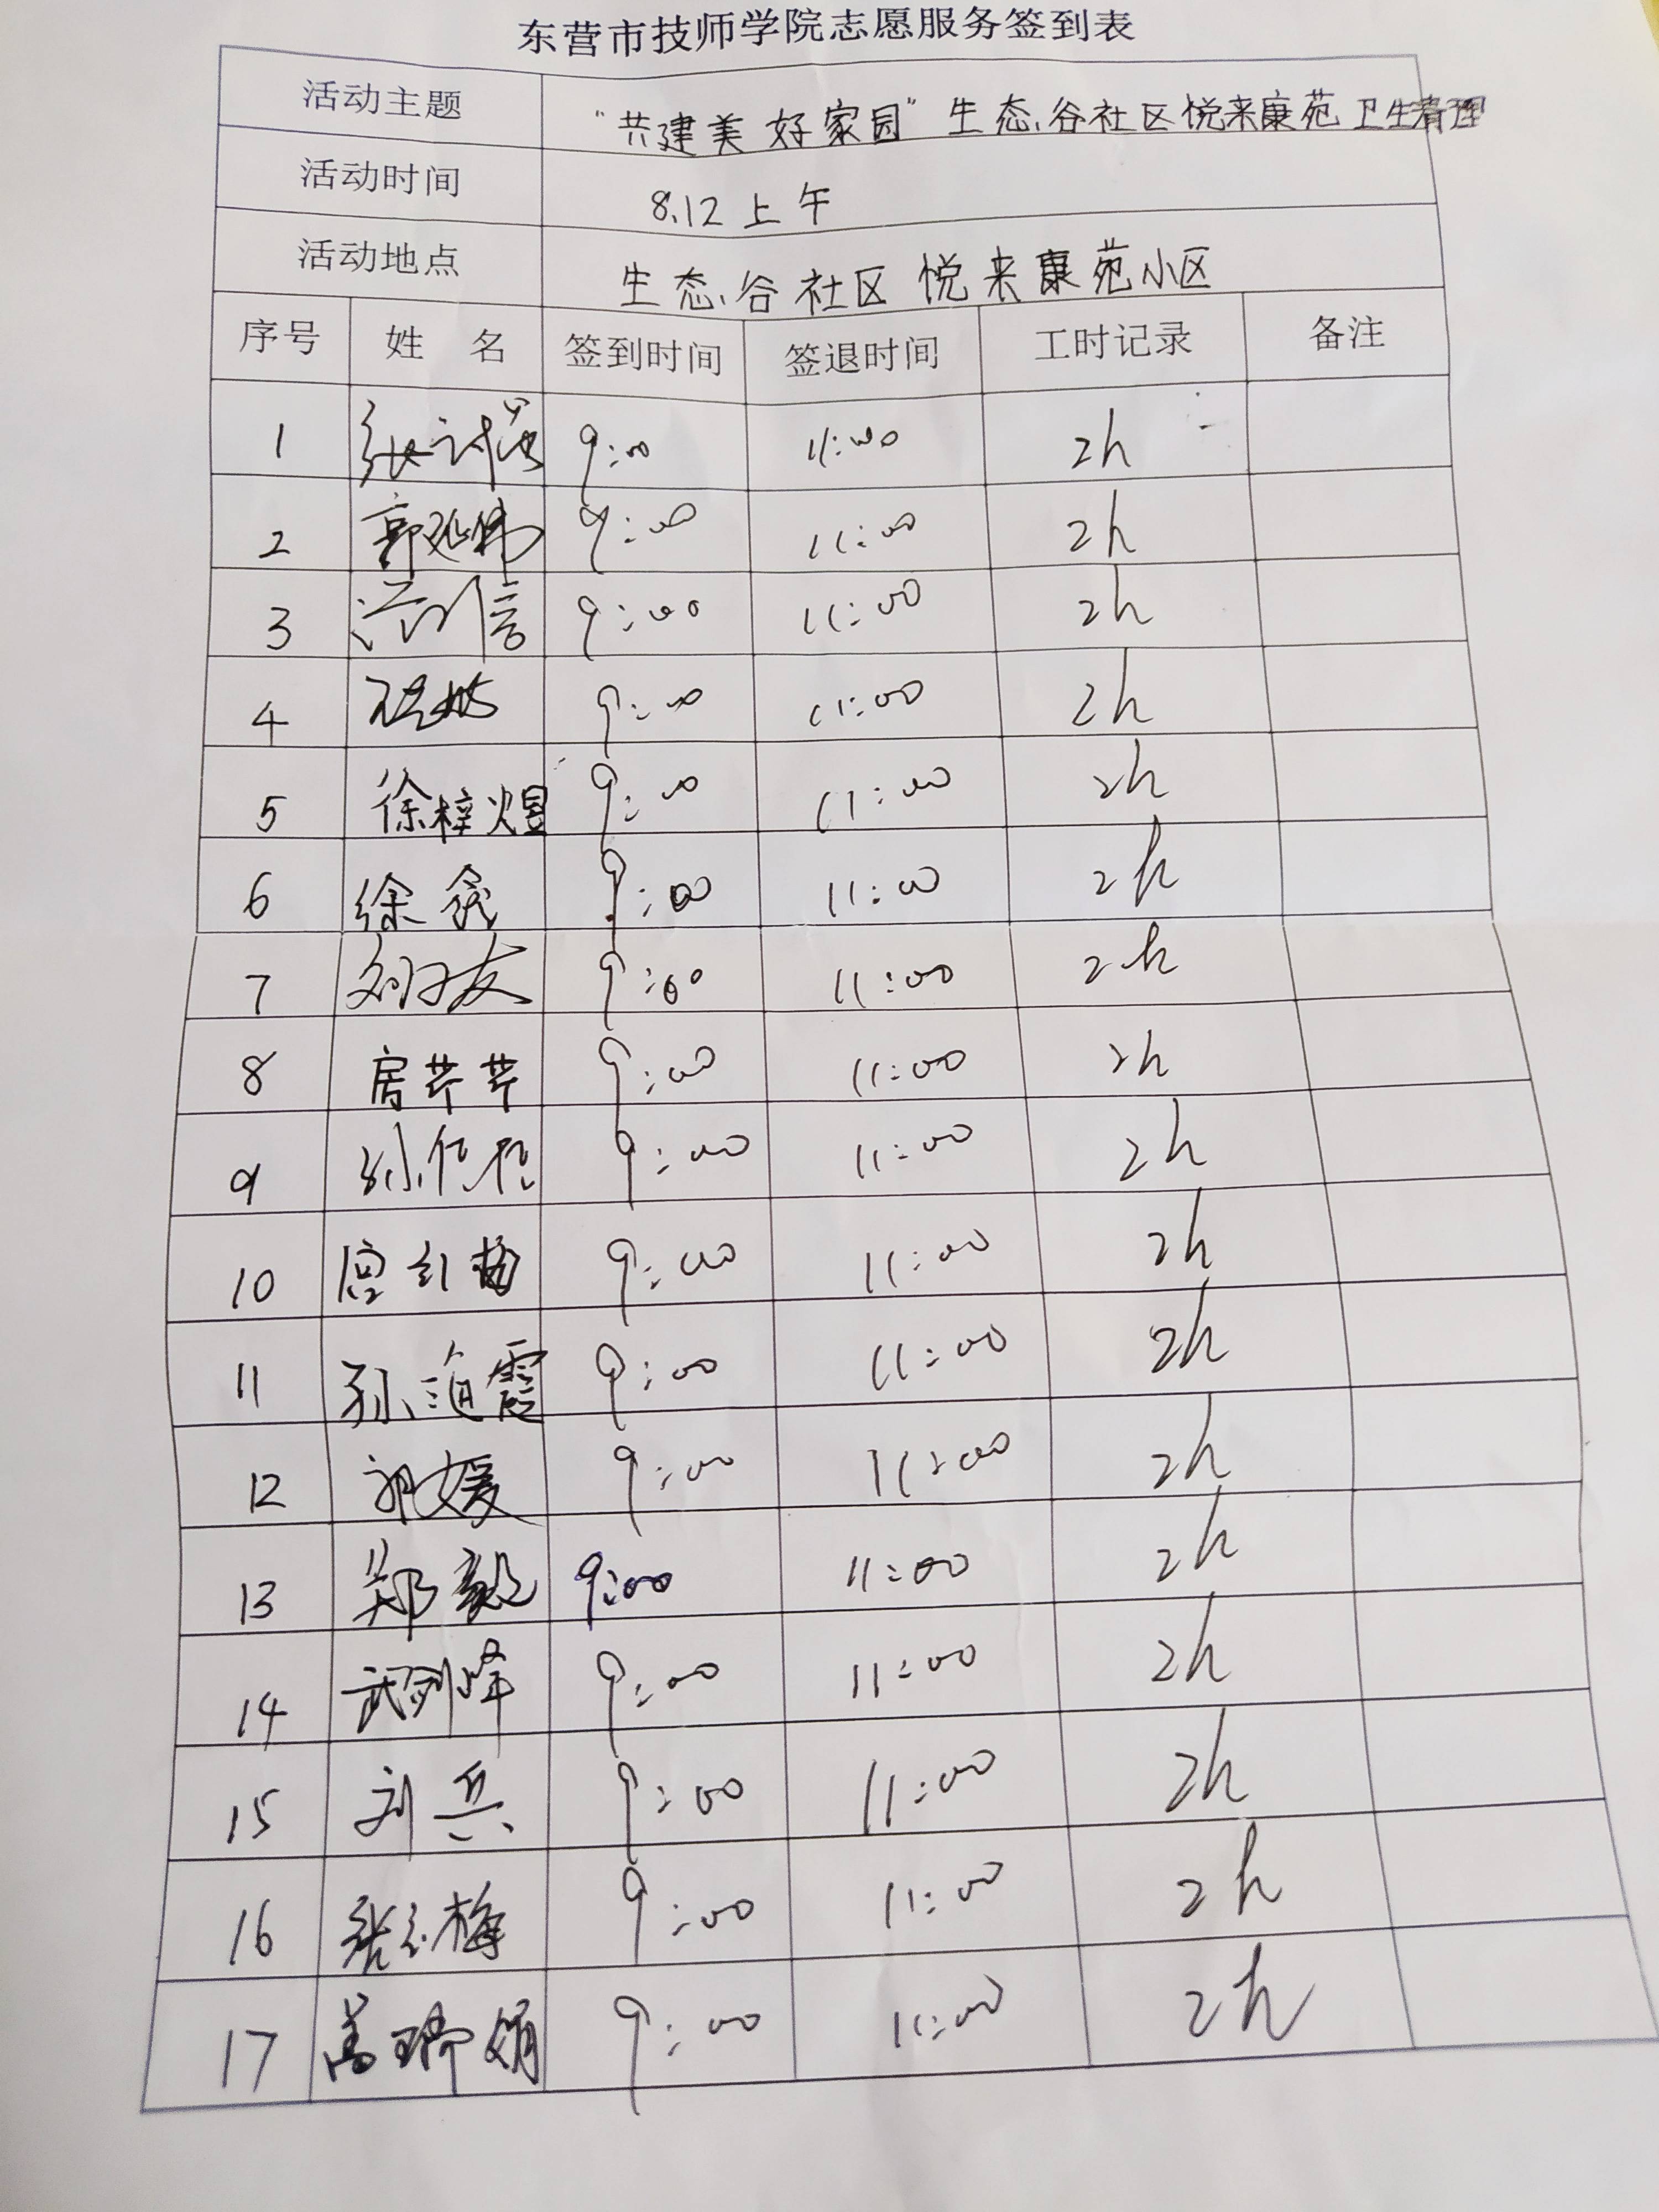 东营市技师学院志愿服务签到表
活动主题 "共建美好家园"生态谷社区悦来康苑卫生清理
活动时间 8.12上午
活动地点 生态谷社区悦来康苑小区
序号 姓 名 签到时间 签退时间 工时记录 备注
1 张 9:00 11:00 2h
2 郭延伟 9:00 11:00 2h
3 9:00 11:00 2h
4 9:00 11:00 2h
5 徐梓煜 9:00 11:00 2h
6 徐鑫 9:00 11:00 2h
7 刘友 9:00 11:00 2h
8 房芹芹 9:00 11:00 2h
9 孙 9:00 11:00 2h
10 红梅 9:00 11:00 2h
11 孙海霞 9:00 11:00 2h
12 郭媛 9:00 11:00 2h
13 郑毅 9:00 11:00 2h
14 武剑峰 9:00 11:00 2h
15 刘兵 9:00 11:00 2h
16 张红梅 9:00 11:00 2h
17 盖娜娟 9:00 11:00 2h